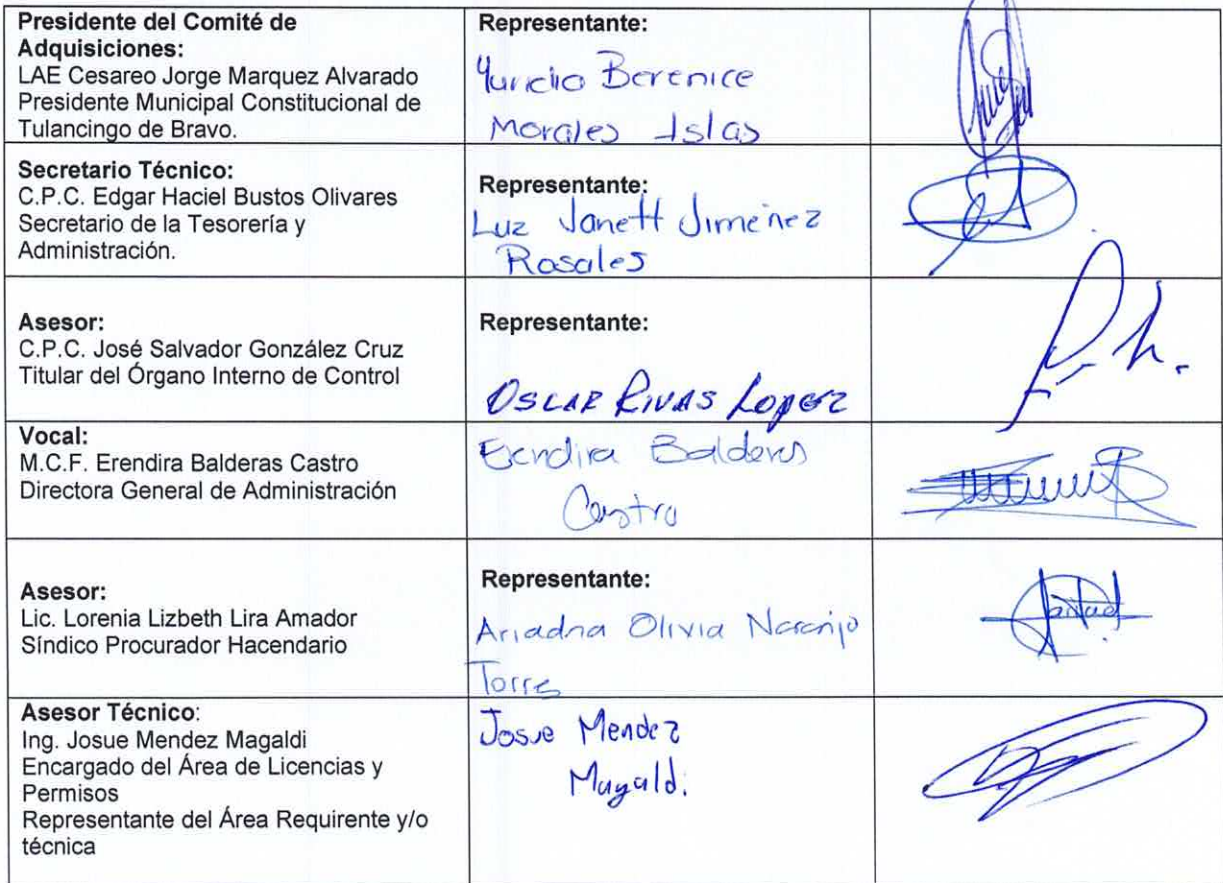 Presidente del Comité de
Adquisiciones:
LAE Cesareo Jorge Marquez Alvarado
Presidente Municipal Constitucional de
Tulancingo de Bravo.
Representante:
Berenice
Morales Islas
Secretario Técnico:
C.P.C. Edgar Haciel Bustos Olivares
Secretario de la Tesorería y
Administración.
Representante:
Luz Janett Jimenez
Rosales
Asesor:
C.P.C. José Salvador González Cruz
Titular del Órgano Interno de Control
Representante:
OSCAR RIVAS LOPEZ
Vocal:
M.C.F. Erendira Balderas Castro
Directora General de Administración
Erendira Balderas
Castro
Asesor:
Lic. Lorenia Lizbeth Lira Amador
Síndico Procurador Hacendario
Representante:
Ariadna Olivia Naranjo
Torres
Asesor Técnico:
Ing. Josue Mendez Magaldi
Encargado del Área de Licencias y
Permisos
Representante del Área Requirente y/o
técnica
Josue Mendez
Magaldi